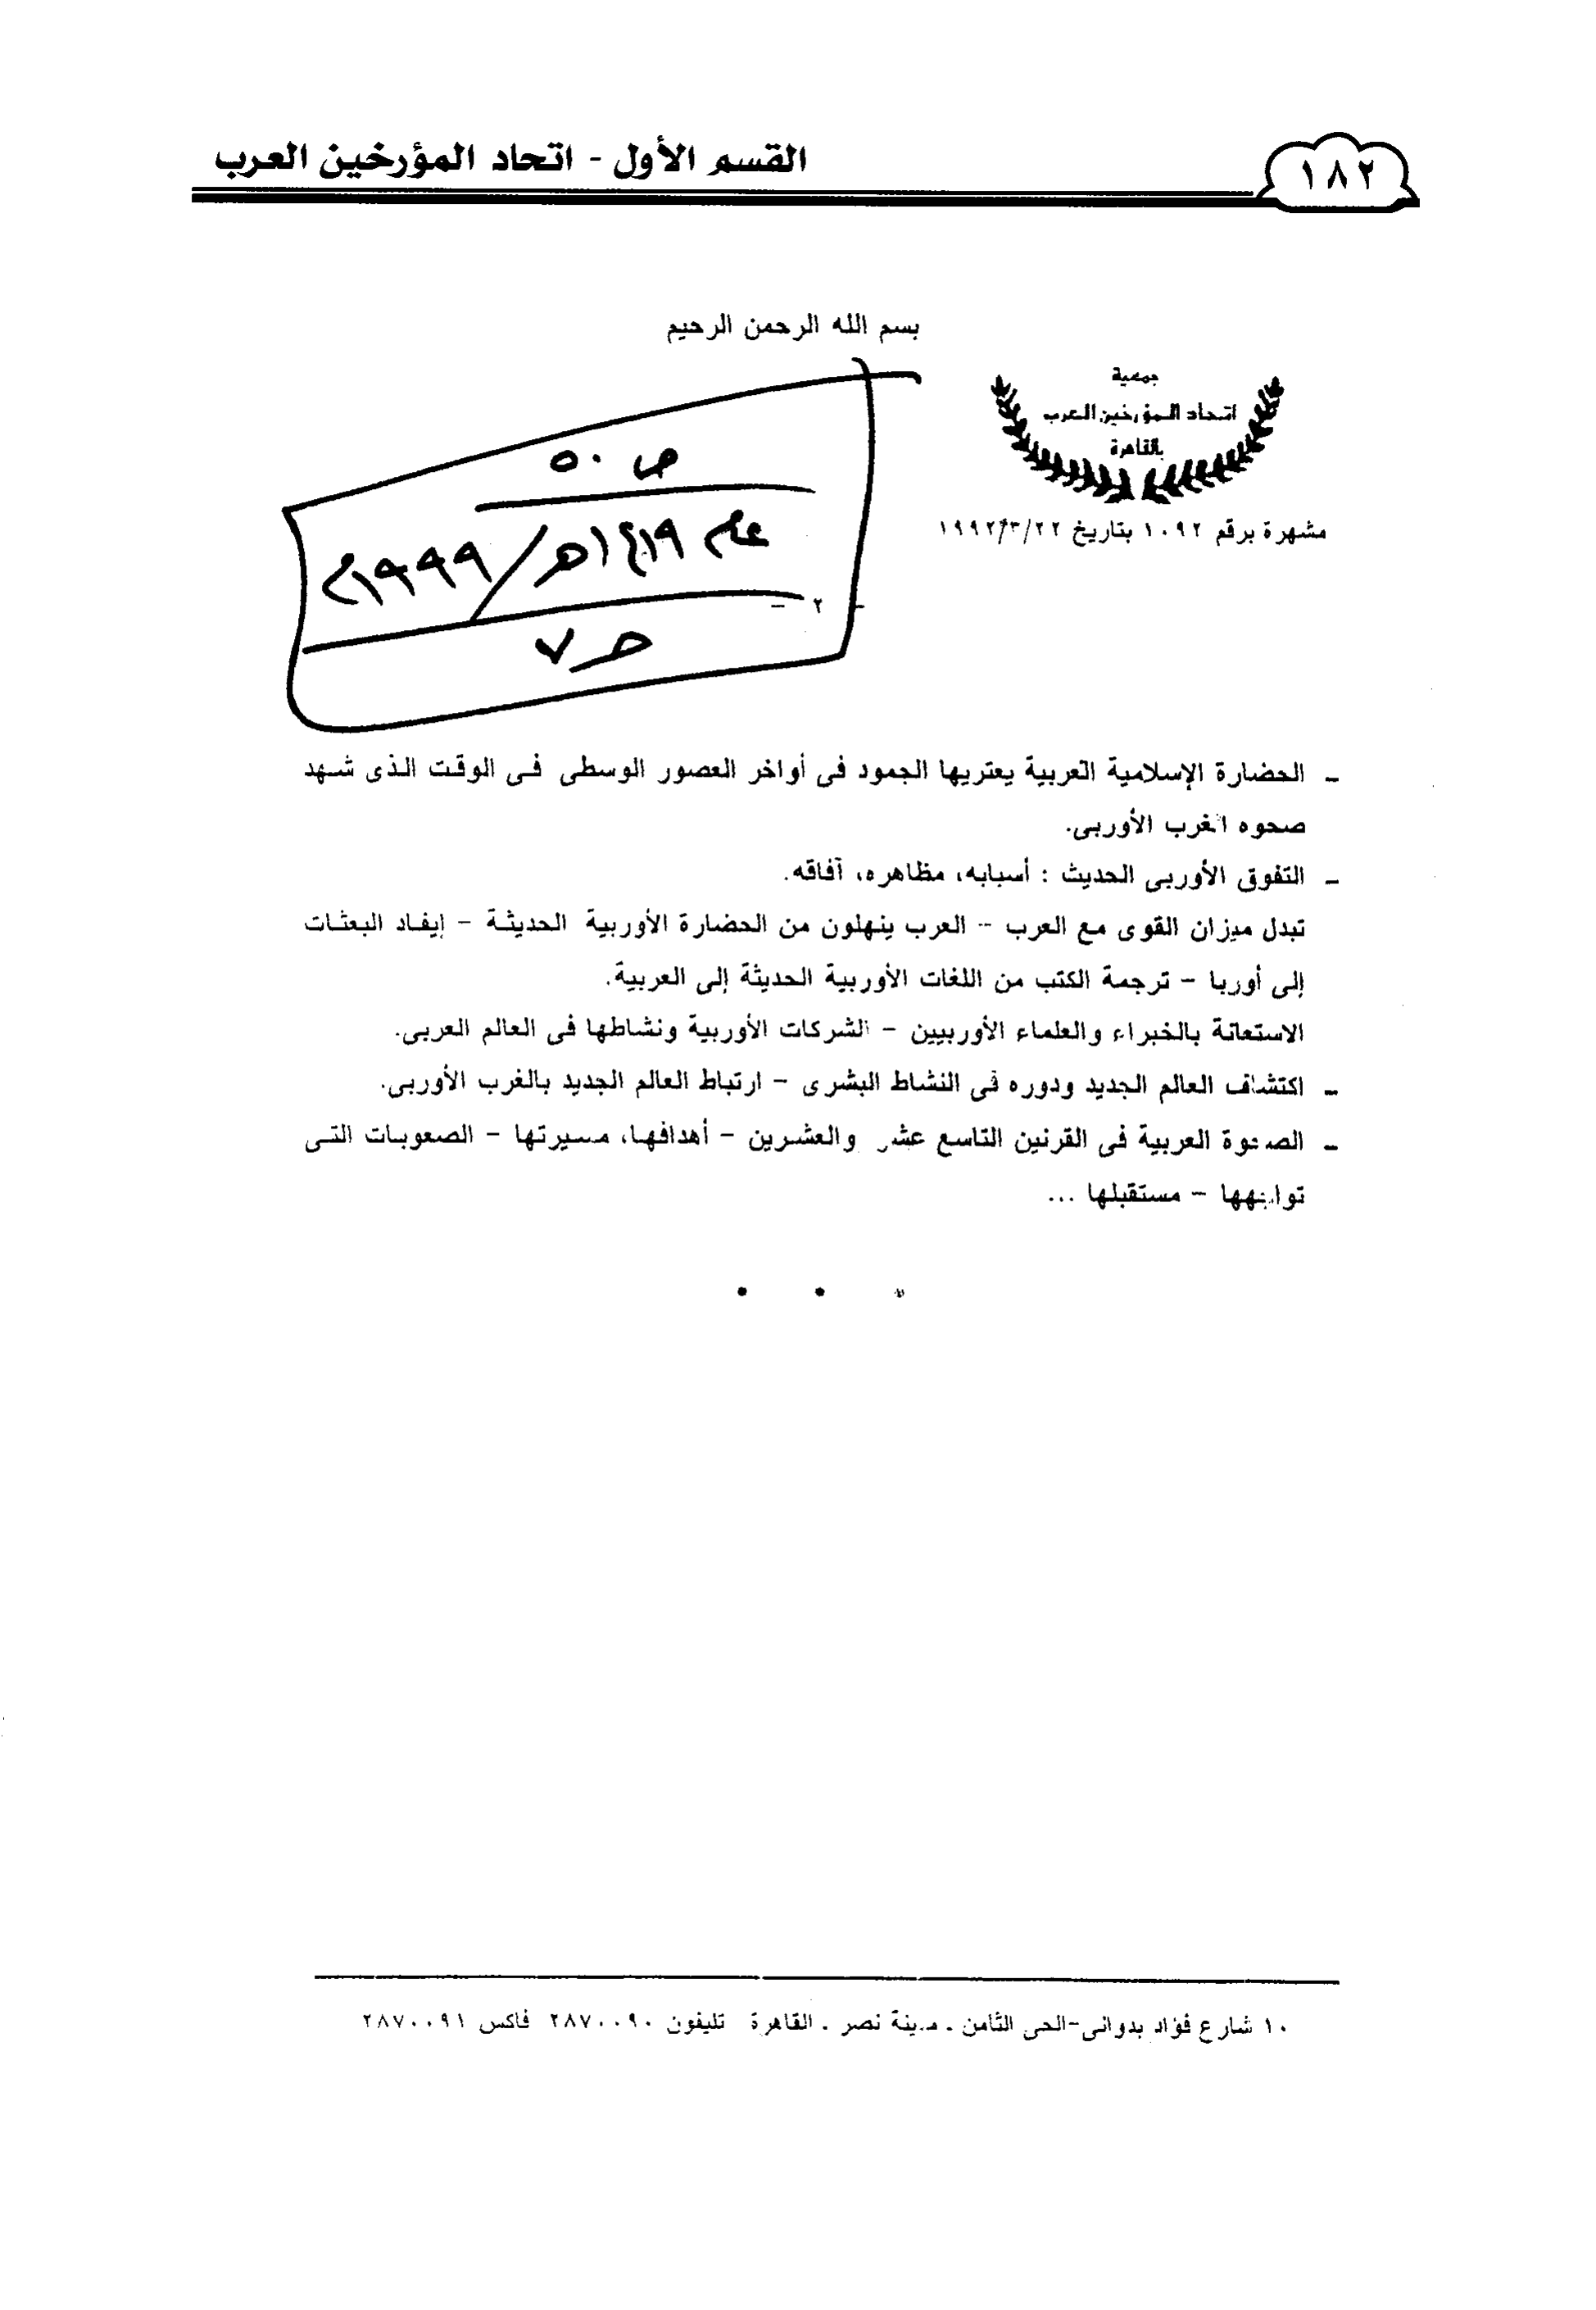 ١٨٢
القسم الأول - اتحاد المؤرخين العرب
بسم الله الرحمن الرحيم
جمعية
اتحاد المؤرخين العرب
بالقاهرة
مشهرة برقم ١٠٩٢ بتاريخ ١٩٩٢/٣/٢٢
ص ٥٠
عام ١٤١٩هـ/١٩٩٩م
ح ٧
- ٢ -
- الحضارة الإسلامية العربية يعتريها الجمود فى أواخر العصور الوسطى فى الوقت الذى شهد
صحوه الغرب الأوربى.
- التفوق الأوربى الحديث : أسبابه، مظاهره، آفاقه.
تبدل ميزان القوى مع العرب - العرب ينهلون من الحضارة الأوربية الحديثة - إيفاد البعثات
إلى أوربا - ترجمة الكتب من اللغات الأوربية الحديثة إلى العربية.
الاستعانة بالخبراء والعلماء الأوربيين - الشركات الأوربية ونشاطها فى العالم العربى.
- اكتشاف العالم الجديد ودوره فى النشاط البشرى - ارتباط العالم الجديد بالغرب الأوربى.
- الصحوة العربية فى القرنين التاسع عشر والعشرين - أهدافها، مسيرتها - الصعوبات التى
تواجهها - مستقبلها ...
١٠ شارع فؤاد بدوانى-الحى الثامن - مدينة نصر - القاهرة تليفون ٢٨٧٠٠٩٠ فاكس ٢٨٧٠٠٩١